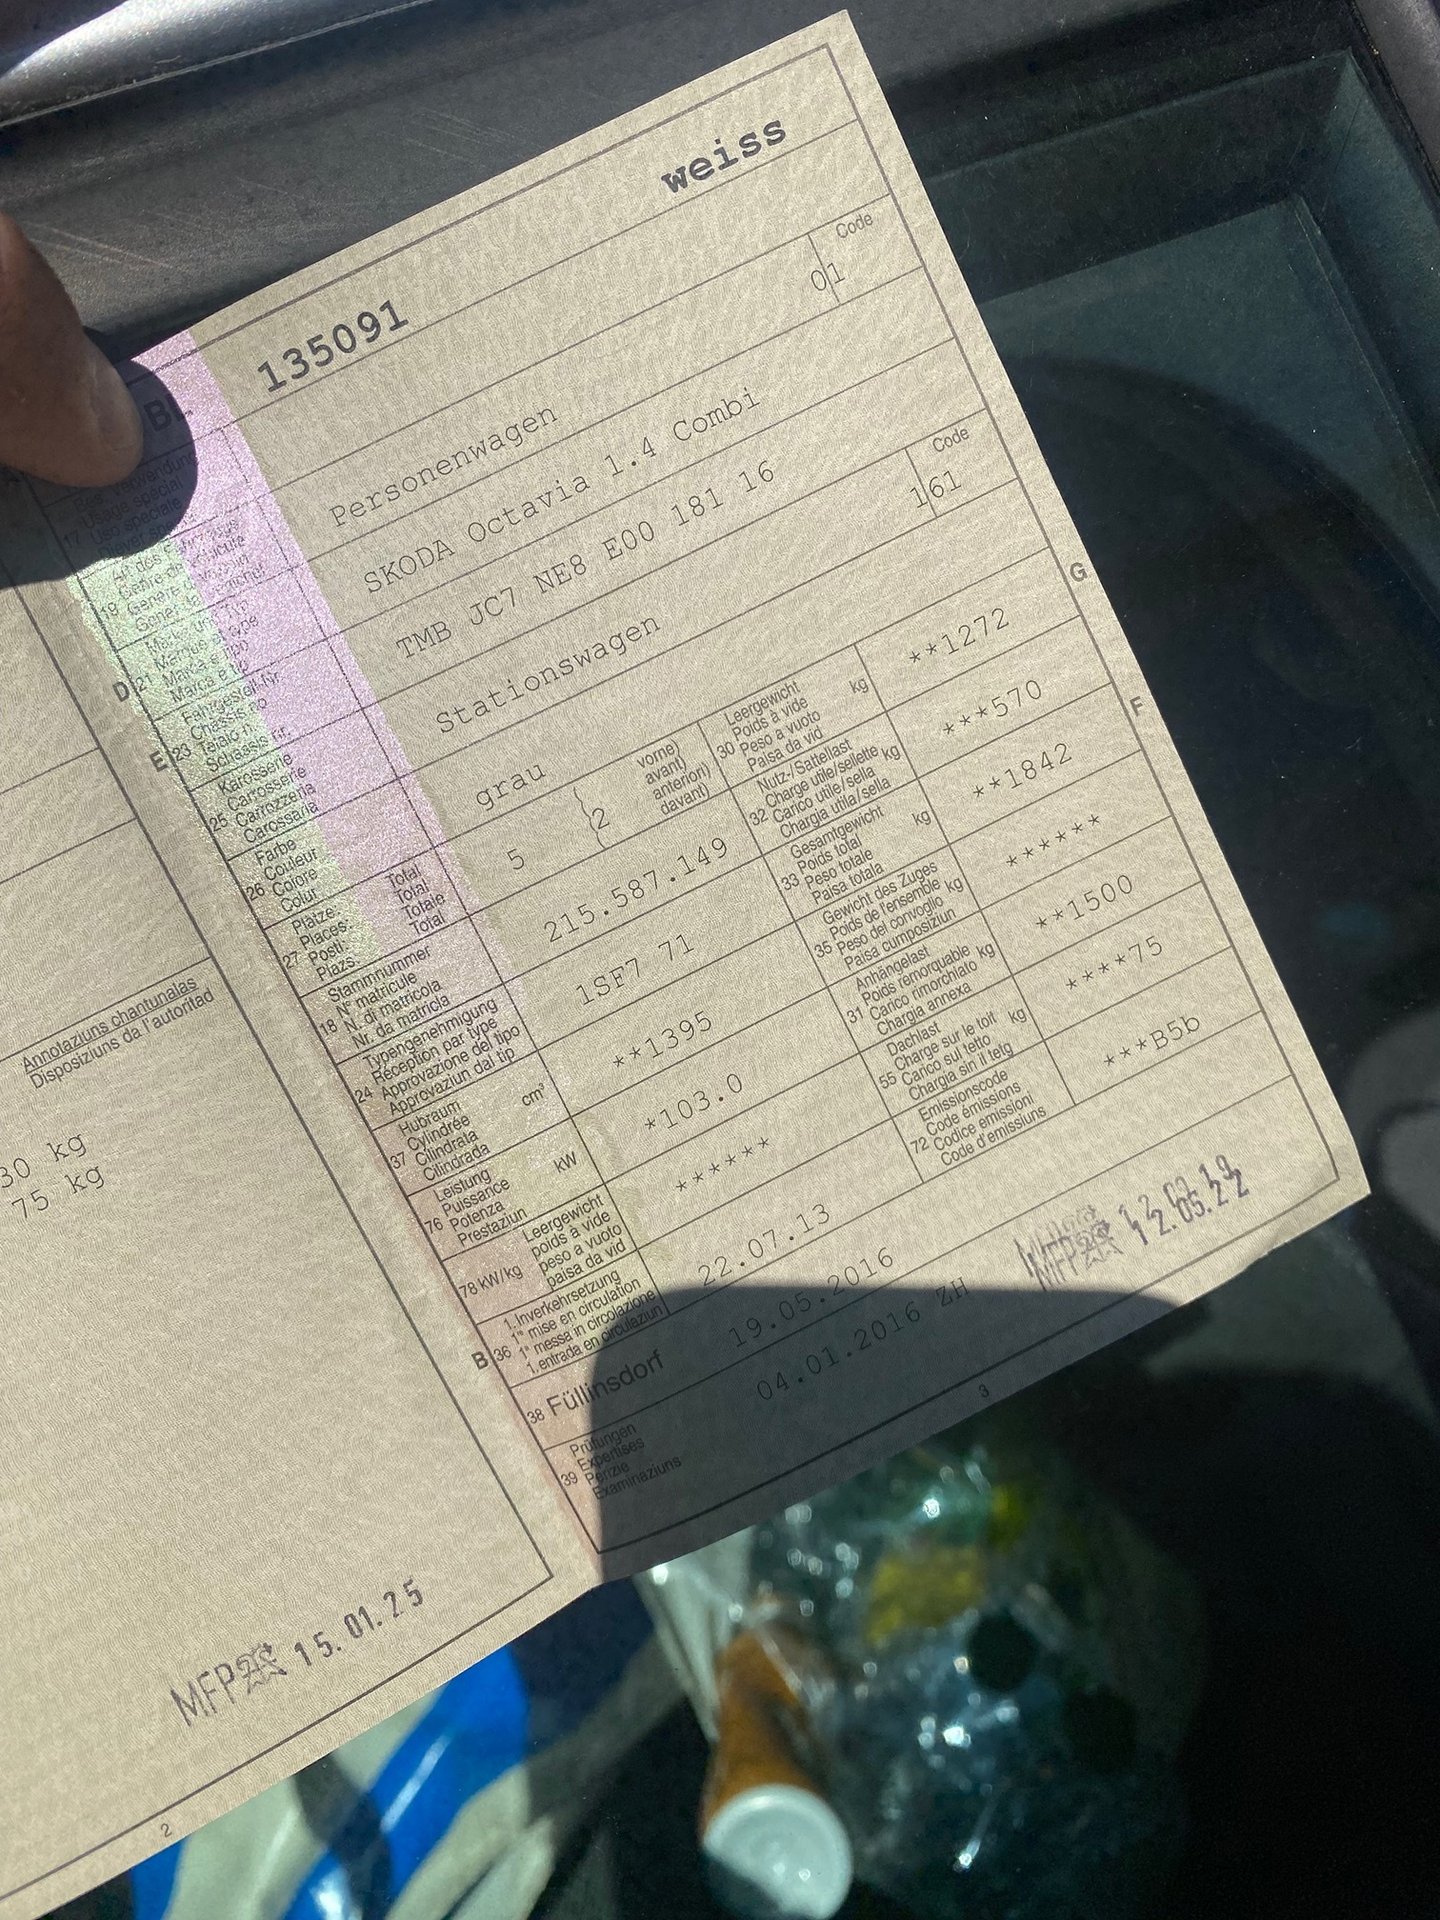 Annotaziuns chantunalas
Disposiziuns da l'autoritad
30 kg
75 kg
MFP 15.01.25
2
BL 135091 weiss
Bes. Verwendung
Usage spécial
17 Uso speciale
Code
Personenwagen 01
Art des Fahrzeugs
Genre de véhicule
19 Genere
D 21 Marke und Typ
Marque et type
Marca e tipo
Marca e tip
SKODA Octavia 1.4 Combi
E 23 Fahrgestell-Nr.
Châssis no
Telaio n.
Schassis nr.
TMB JC7 NE8 E00 181 16
Code
25 Karosserie
Carrosserie
Carrozzeria
Carossaria
Stationswagen 161
26 Farbe
Couleur
Colore
Colur
grau
27 Plätze: Total
Places: Total
Posti: Totale
Plazs: Total
5 2
vorne)
avant)
anteriori)
davant)
18 Stammnummer
N° matricule
N. di matricola
Nr. da matricla
215.587.149
24 Typengenehmigung
Réception par type
Approvazione del tipo
Approvaziun dal tip
1SF7 71
37 Hubraum cm³
Cylindrée
Cilindrata
Cilindrada
**1395
76 Leistung kW
Puissance
Potenza
Prestaziun
*103.0
78 kW/kg Leergewicht
poids à vide
peso a vuoto
paisa da vid
*****
B 36 1. Inverkehrsetzung
1re mise en circulation
1a messa in circolazione
1. entrada en circulaziun
22.07.13
38 Füllinsdorf 19.05.2016
39 Prüfungen
Expertises
Perizie
Examinaziuns
04.01.2016 ZH
G
30 Leergewicht kg
Poids à vide
Peso a vuoto
Paisa da vid
**1272
32 Nutz-/Sattellast kg
Charge utile/sellette
Carico utile/sella
Chargia utila/sella
***570
F
33 Gesamtgewicht kg
Poids total
Peso totale
Paisa totala
**1842
35 Gewicht des Zuges kg
Poids de l'ensemble
Peso del convoglio
Paisa cumposiziun
******
31 Anhängelast kg
Poids remorquable
Carico rimorchiato
Chargia annexa
**1500
55 Dachlast kg
Charge sur le toit
Carico sul tetto
Chargia sin il tetg
****75
72 Emissionscode
Code émissions
Codice emissioni
Code d'emissiuns
***B5b
MFP
12.05.22
3